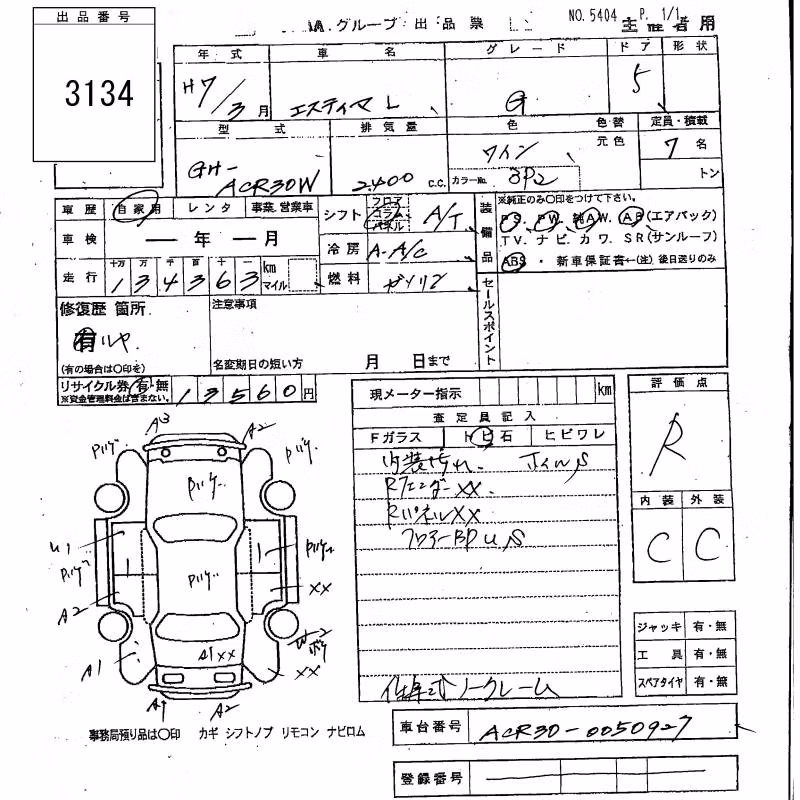 出品番号
3134
グループ 出品票
NO. 5404 P. 1/1
主催者用
年式 車名 グレード ドア 形状
H7/3月 エスティマL G 5
型式 排気量 色 色替 定員・積載
元色
GH-ACR30W 2400 c.c. ワイン 7名
カラーNo. 3P2
トン
車歴 自家用 レンタ 事業、営業車
シフト フロア コラム パネル A/T
装備品
※純正のみ○印をつけて下さい。
PS. PW. 純AW. AB(エアバック)
TV. ナビ. カワ. SR(サンルーフ)
ABS ・ 新車保証書←(注)後日送りのみ
車検 ― 年 ― 月
冷房 A.A/C
走行 十万 万 千 百 十 一
134363 km マイル
燃料 ガソリン
セールスポイント
修復歴 箇所
有
(有の場合は○印を)
注意事項
名変期日の短い方 月 日まで
リサイクル券 有・無 13560円
※資金管理料金は含まない。
現メーター指示 km
査定員記入
Fガラス トビ石 ヒビワレ
内装汚れ
Rフェンダー XX
RパネルXX
フロアーBP U,S
ノークレーム
評価点
R
内装 外装
C C
ジャッキ 有・無
工具 有・無
スペアタイヤ 有・無
A3 A2
U1
A2 XX
A1 A1XX W2 XX
A1 A2
事務局預り品は○印 カギ シフトノブ リモコン ナビロム
車台番号 ACR30-0050927
登録番号